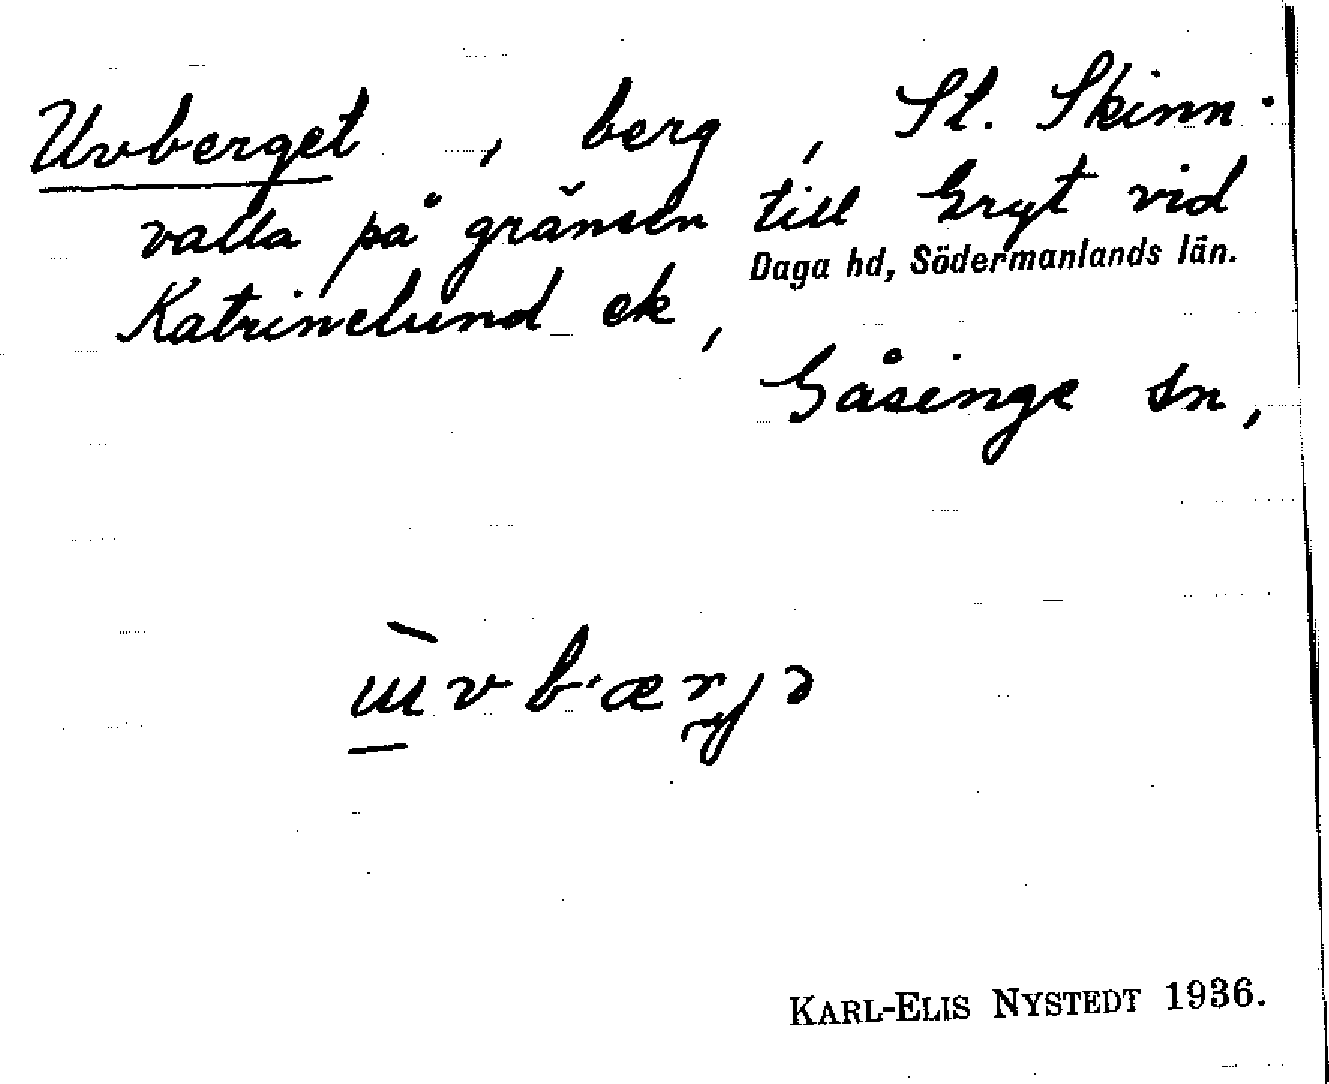 Uvberget, berg, St. Skinn-
valla på gränsen till Gryt vid
Daga hd, Södermanlands län.
Katrinelund ek,
Gåsinge sn,
KARL-ELIS NYSTEDT 1936.